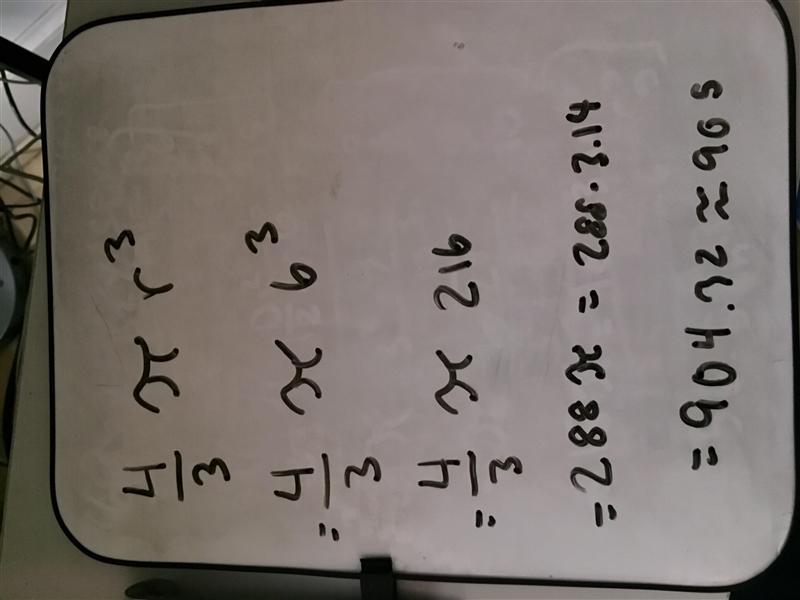 4/3 π r³
= 4/3 π 6³
= 4/3 π 216
= 288 π = 288 · 3.14
= 904.32 ≈ 905